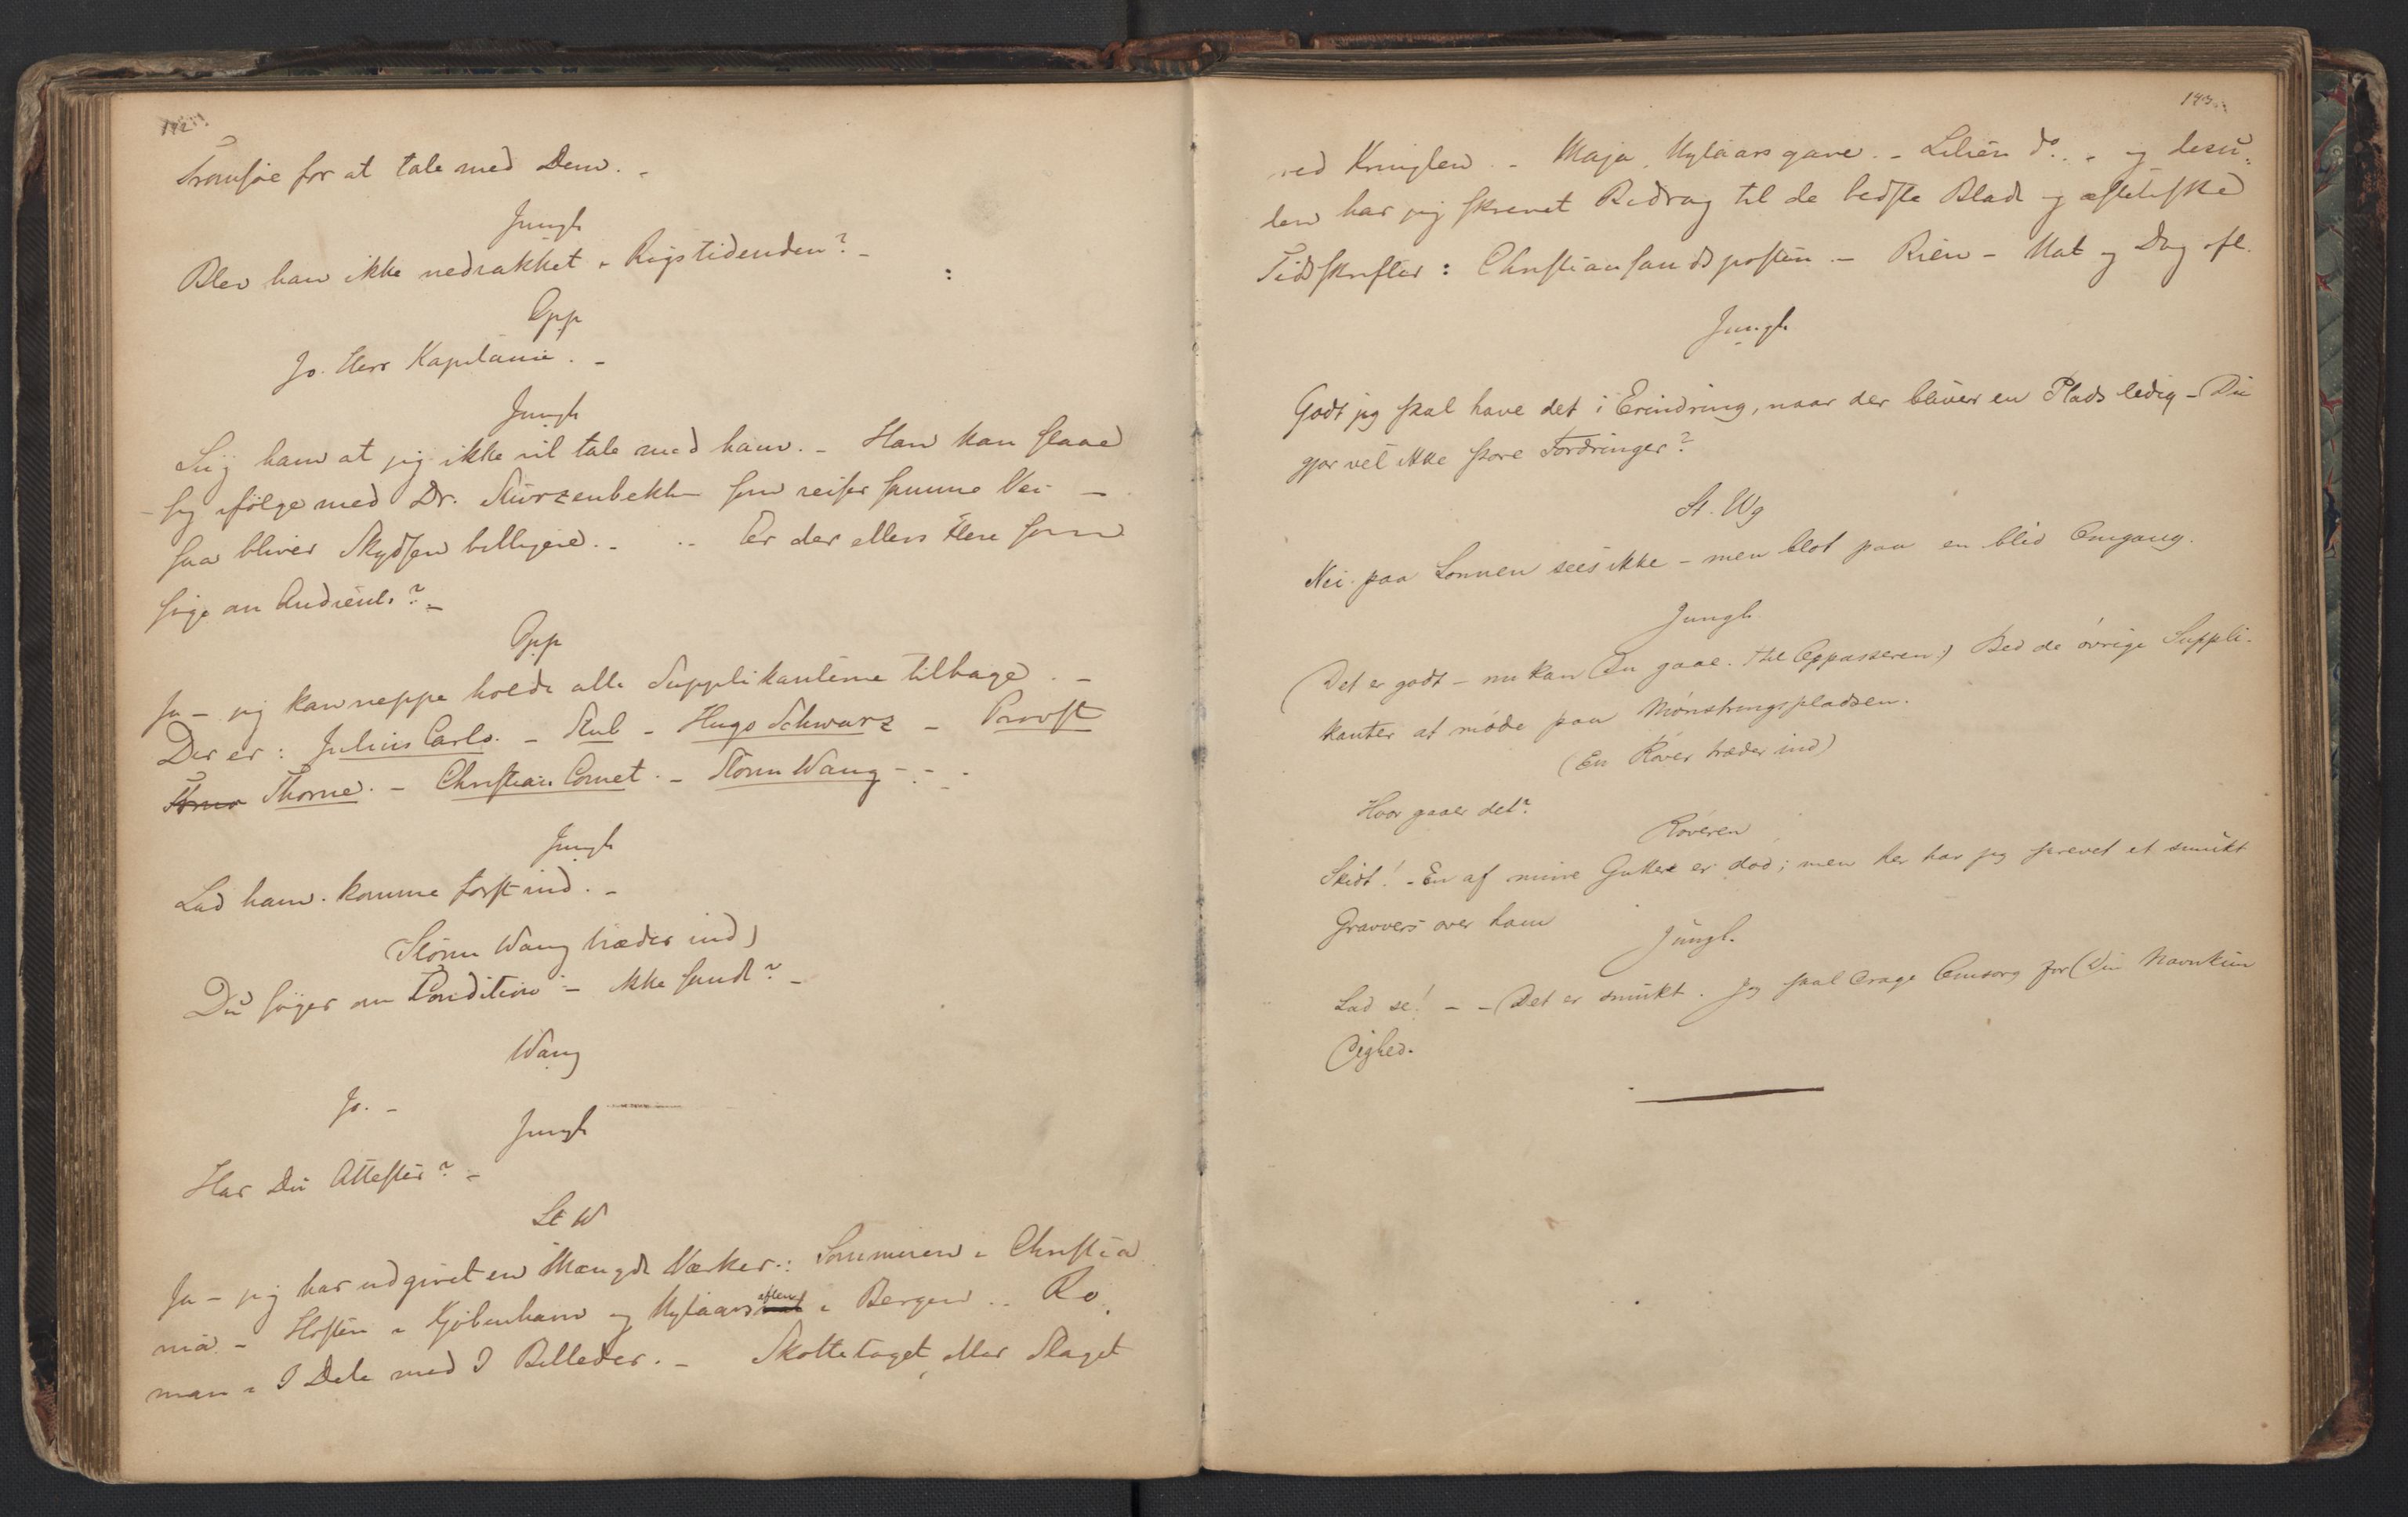 142.
Tromsøe for at tale med Dem. -
Jungh
Blev han ikke nedrakket i Rigstidenden? -
Opp
Jo. Herr Kapitaine. -
Jungh
Siig ham at jeg ikke vil tale med ham. - Han kan slaae
sig ifölge med Dr. Stürzenbekker som reiser samme Vei -
saa bliver Skydsen billigere. - .. Er der ellers flere som
söge om Audients? -
Opp
Ja - jeg kan neppe holde alle Supplikanterne tilbage. -
Der er: Julius Carlo. - Stub - Hugo Schwarz - Provst
Thorne. - Christian Comet. - Storm Wang - - .
Jungh
Lad ham komme først ind. -
(Storm Wang træder ind)
Du söger om Condition - ikke sandt? -
Wang
Jo. -
Jungh
Har Du Attester? -
St W
Ja - jeg har udgivet en Mængde Værker: Sommeren i Christia
nia - Høsten i Kjöbenhavn og Nytaarsaften i Bergen .. Ro
man i 9 Dele med 9 Billeder. - Skottetoget eller Slaget
143.
ved Kringlen. - Maja, Nytaarsgave. - Lilien do. . og desu-
den har jeg skrevet Bidrag til de bedste Blade og æstetiske
Tidsskrifter: Christiansandsposten. - Rien - Nat og Dag ofl.
Jungh
Godt jeg skal have det i Erindring, naar der bliver en Plads ledig - Du
gjør vel ikke store Fordringer?
St. Wg
Nei. paa Lönnen sees ikke - men blot paa en blid Omgang.
Jungh
Det er godt - nu kan Du gaae. (til Oppasseren) Bed de óvrige Suppli-
kanter at möde paa Mönstringspladsen.
(En Röver træder ind)
Hvor gaaer det?
Röveren
Skidt! - En af mine Gutter er död; men her har jeg skrevet et smukt
Gravvers over ham
Jungh.
Lad se! - - Det er smukt. Jeg skal drage Omsorg for Din Navnkun
dighed.